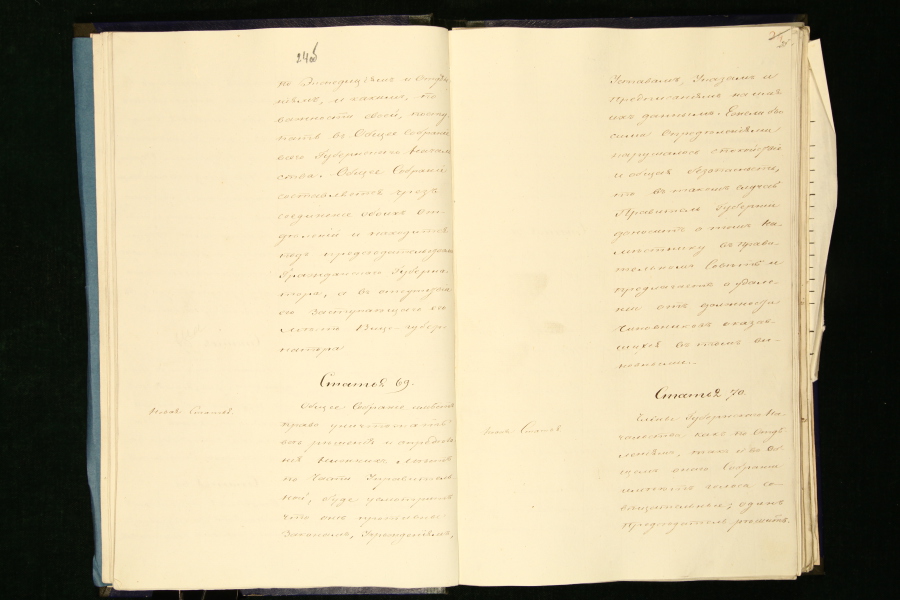 24об
по Экспедициям и Отдѣ-
ніямъ, и какія, по
важности своей, посту-
паютъ въ Общее Собраніе
всего Губернскаго Началь-
ства. Общее Собраніе
составляется чрезъ
соединеніе обоихъ От-
дѣленій и находится
подъ предсѣдательствомъ
Гражданскаго Губерна-
тора, а въ отсутствіи
его Заступающаго его
мѣсто Вице-Губер-
натора
Статья 69.
Новая Статья.
Общее Собраніе имѣетъ
право уничтожать
все рѣшенія и опредѣле-
нія
по части Управитель-
ной, буде усмотритъ
что они противны
Законамъ, Учрежденіямъ,
25
Уставамъ, Указамъ и
Предписаніямъ на
ихъ даннымъ. Если бы
сими Опредѣленіями
нарушалось спокойствіе
и общая безопасность,
то въ такомъ случаѣ
Правитель Губерніи
доноситъ о томъ На-
мѣстнику въ Прави-
тельномъ Совѣтѣ и
предлагаетъ о удале-
ніи отъ должности
Чиновниковъ оказав-
шихся въ томъ ви-
новными.
Статья 70.
Новая Статья
Члены Губернскаго На-
чальства какъ по Отдѣ-
леніямъ, такъ и въ Об-
щемъ оныхъ Собраніи
имѣютъ голоса со-
вѣщательные; одинъ
Предсѣдатель рѣшитъ.